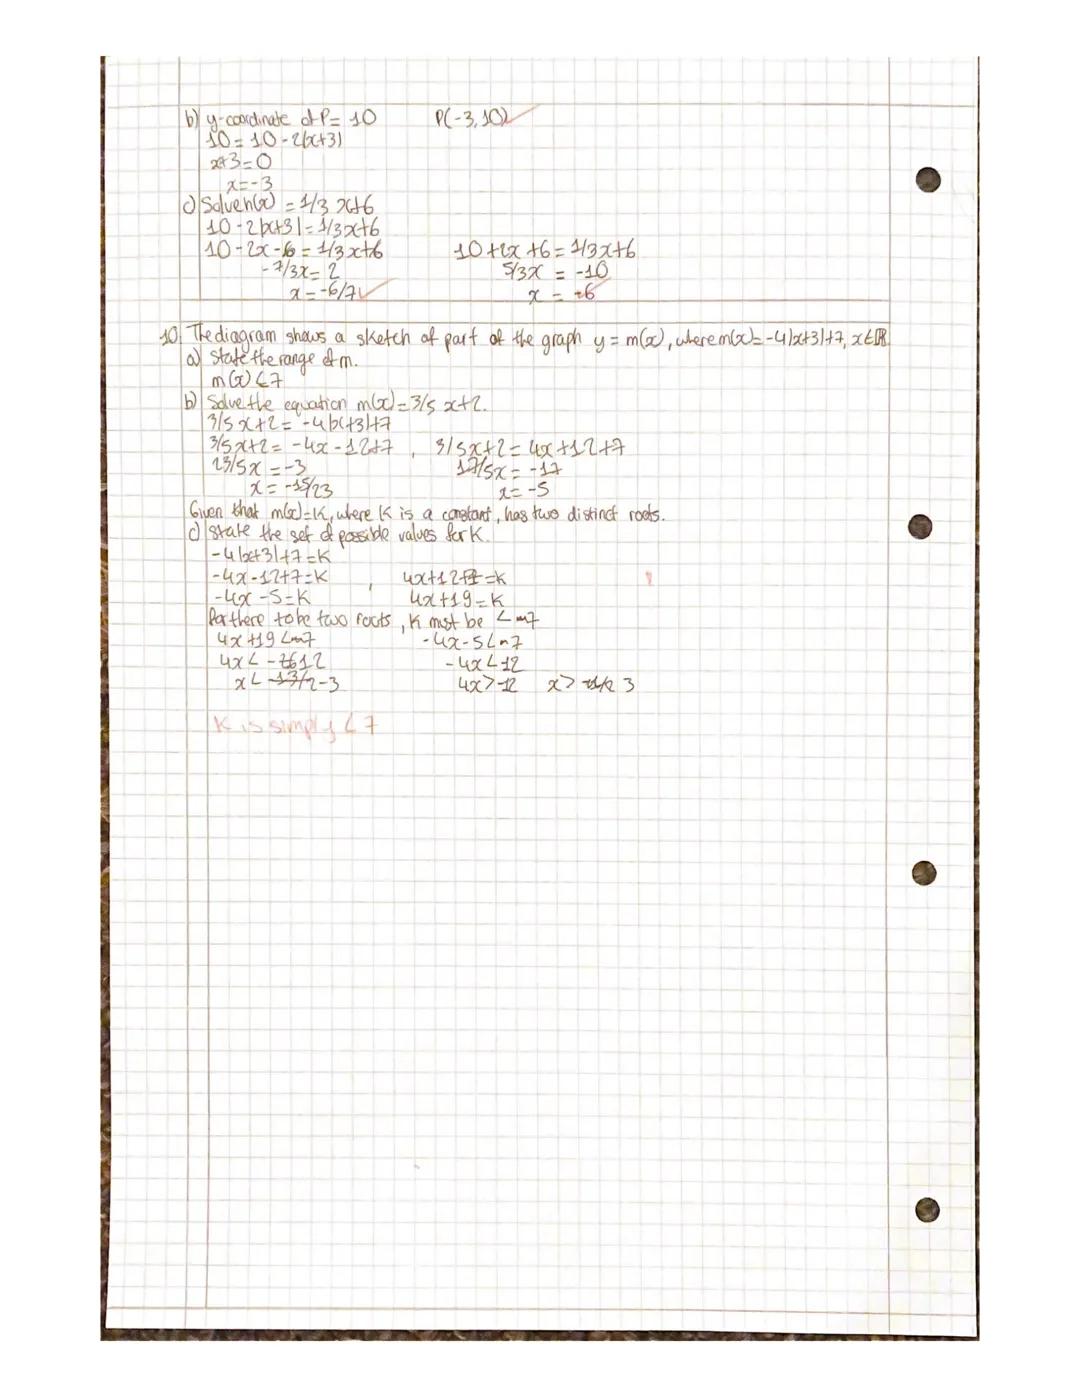 b) y-coordinate of P = 10 P(-3, 10)
10 = 10 - 2|x+3|
x+3 = 0
x = -3
c) Solve h(x) = 1/3 x+6
10 - 2|x+3| = 1/3x+6
10 - 2x - 6 = 1/3x+6 10+2x+6 = 1/3x+6
-7/3x = 2 5/3x = -10
x = -6/7 x = -6
10. The diagram shows a sketch of part of the graph y = m(x), where m(x) = -4|x+3|+7, x∈ℝ.
a) State the range of m.
m(x) ≤ 7
b) Solve the equation m(x) = 3/5 x+2.
3/5 x+2 = -4|x+3|+7
3/5x+2 = -4x-12+7 , 3/5x+2 = 4x+12+7
23/5x = -3 17/5x = -17
x = -15/23 x = -5
Given that m(x)=K, where K is a constant, has two distinct roots.
c) State the set of possible values for K.
-4|x+3|+7 = K
-4x-12+7 = K , 4x+12+7 = K
-4x-5 = K 4x+19 = K
For there to be two roots, K must be < 7
4x+19 < 7 -4x-5 < 7
4x < -12 -4x < 12
x < -3 4x > -12 x > 3
K is simply < 7